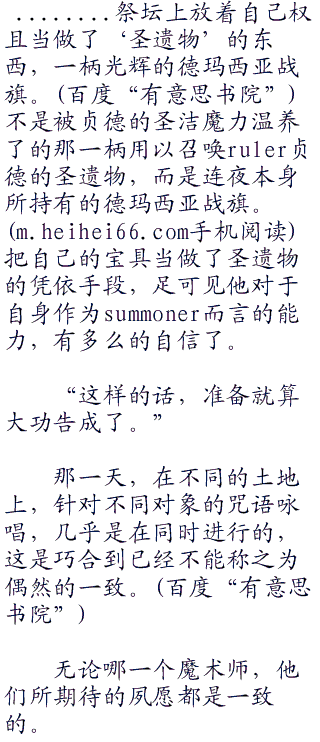 ........祭坛上放着自己权
且当做了‘圣遗物’的东
西，一柄光辉的德玛西亚战
旗。(百度“有意思书院”)
不是被贞德的圣洁魔力温养
了的那一柄用以召唤ruler贞
德的圣遗物，而是连夜本身
所持有的德玛西亚战旗。
(m.heihei66.com手机阅读)
把自己的宝具当做了圣遗物
的凭依手段，足可见他对于
自身作为summoner而言的能
力，有多么的自信了。
“这样的话，准备就算
大功告成了。”
那一天，在不同的土地
上，针对不同对象的咒语咏
唱，几乎是在同时进行的，
这是巧合到已经不能称之为
偶然的一致。(百度“有意思
书院”)
无论哪一个魔术师，他
们所期待的夙愿都是一致
的。